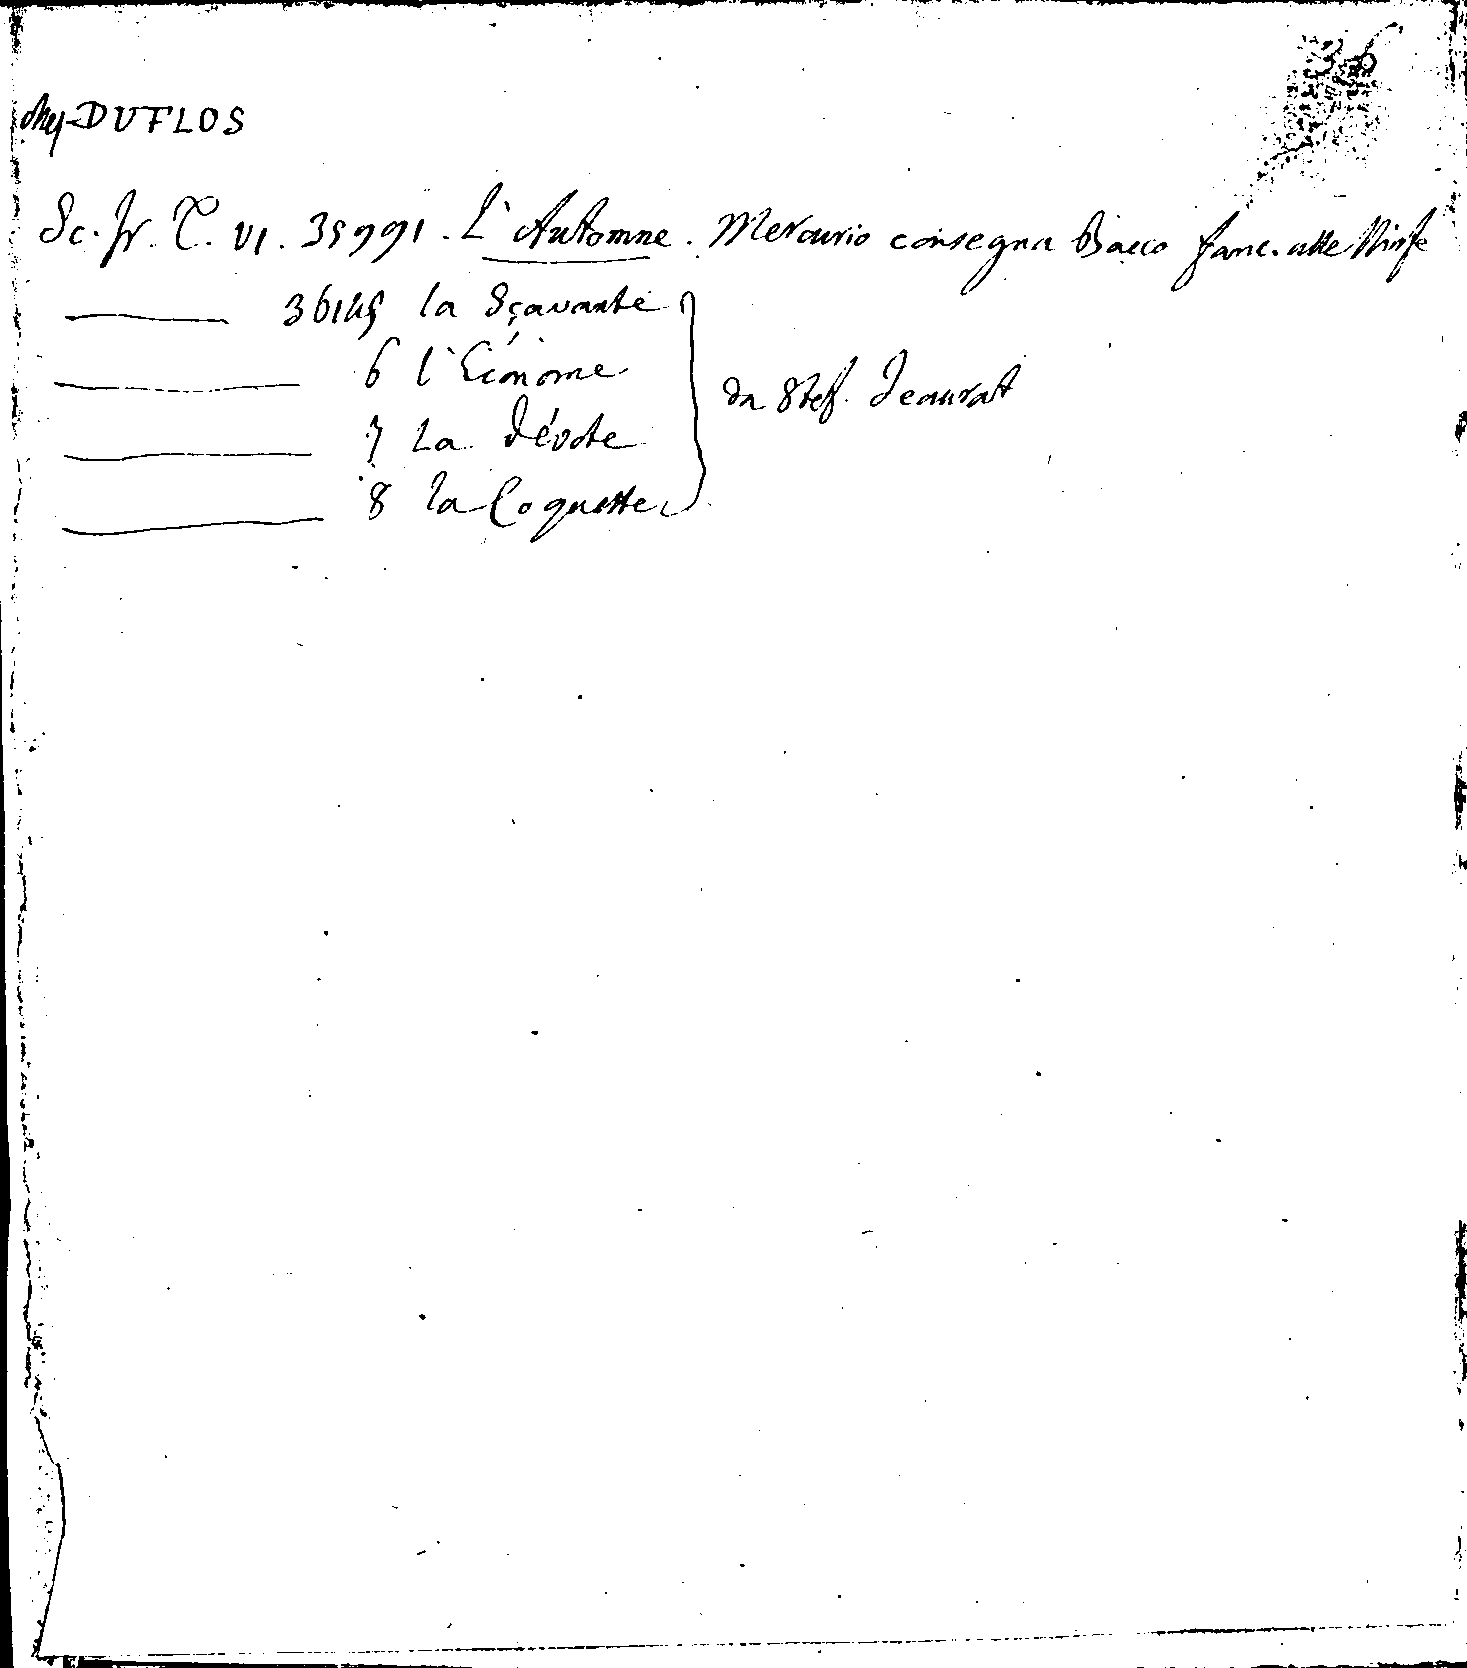 36
DUFLOS
Sc. fr. T. VI. 35991. L'Automne. Mercurio consegna Bacco fanc. alle Ninfe
36145 la Sçavante
6 l'Économe
7 La Dévote
8 la Coquette
da Stef. Jeaurat